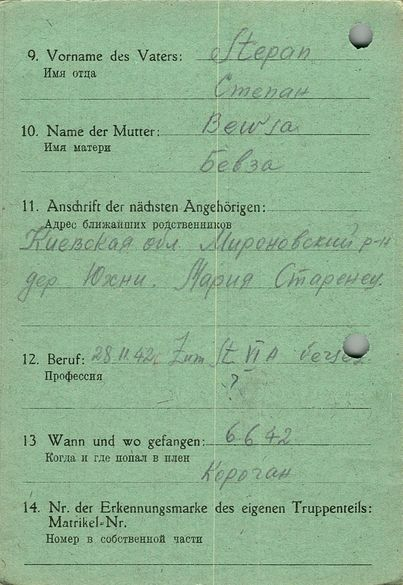 9. Vorname des Vaters: Stepan
Имя отца
Степан
10. Name der Mutter: Bewsa
Имя матери
Бевза
11. Anschrift der nächsten Angehörigen:
Адрес ближайших родственников
Киевская обл. Мироновский р-н
дер Юхни. Мария Старенец.
12. Beruf: 28.11.42. Zum St VI A verse
Профессия
?
13 Wann und wo gefangen: 6 6 42
Когда и где попал в плен
Корочан
14. Nr. der Erkennungsmarke des eigenen Truppenteils:
Matrikel-Nr.
Номер в собственной части